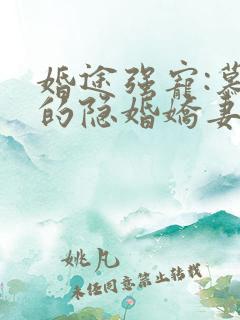 婚途强宠:慕
的隐婚娇妻
姚凡
未经同意禁止转载